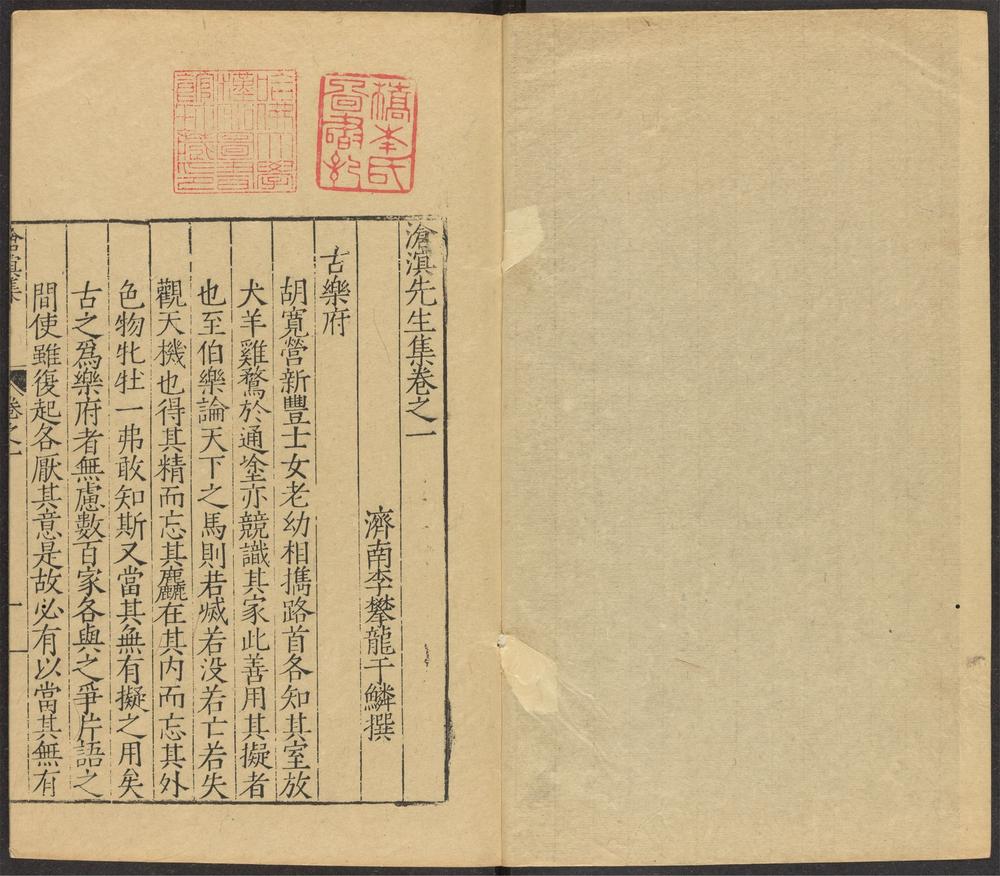 滄溟先生集卷之一
濟南李攀龍于鱗撰
古樂府
胡寬營新豐士女老幼相擕路首各知其室放
犬羊雞鶩於通塗亦競識其家此善用其擬者
也至伯樂論天下之馬則若滅若没若亡若失
觀天機也得其精而忘其麤在其内而忘其外
色物牝牡一弗敢知斯又當其無有擬之用矣
古之爲樂府者無慮數百家各與之爭片語之
間使雖復起各厭其意是故必有以當其無有
滄溟集
卷之一
一
哈佛大學漢和圖書館珍藏印